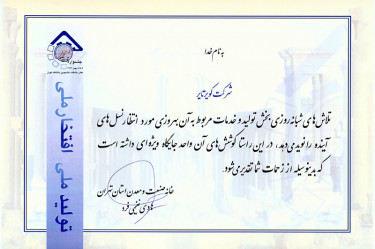 به نام خدا
شرکت کویر تایر
تلاش های شبانه روزی بخش تولید و خدمات مربوط به آن بهروزی مورد انتظار نسل های
آینده را نوید می دهد، در این راستا کوشش های آن واحد جایگاه ویژه ای داشته است
که بدینوسیله از زحمات شما تقدیر می شود.
خانه صنعت و معدن استان تهران
جشنواره
تولید ملی افتخار ملی